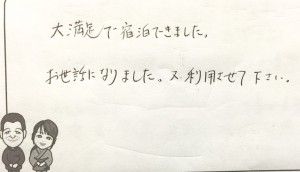 大満足で宿泊できました。
お世話になりました。又利用させて下さい。